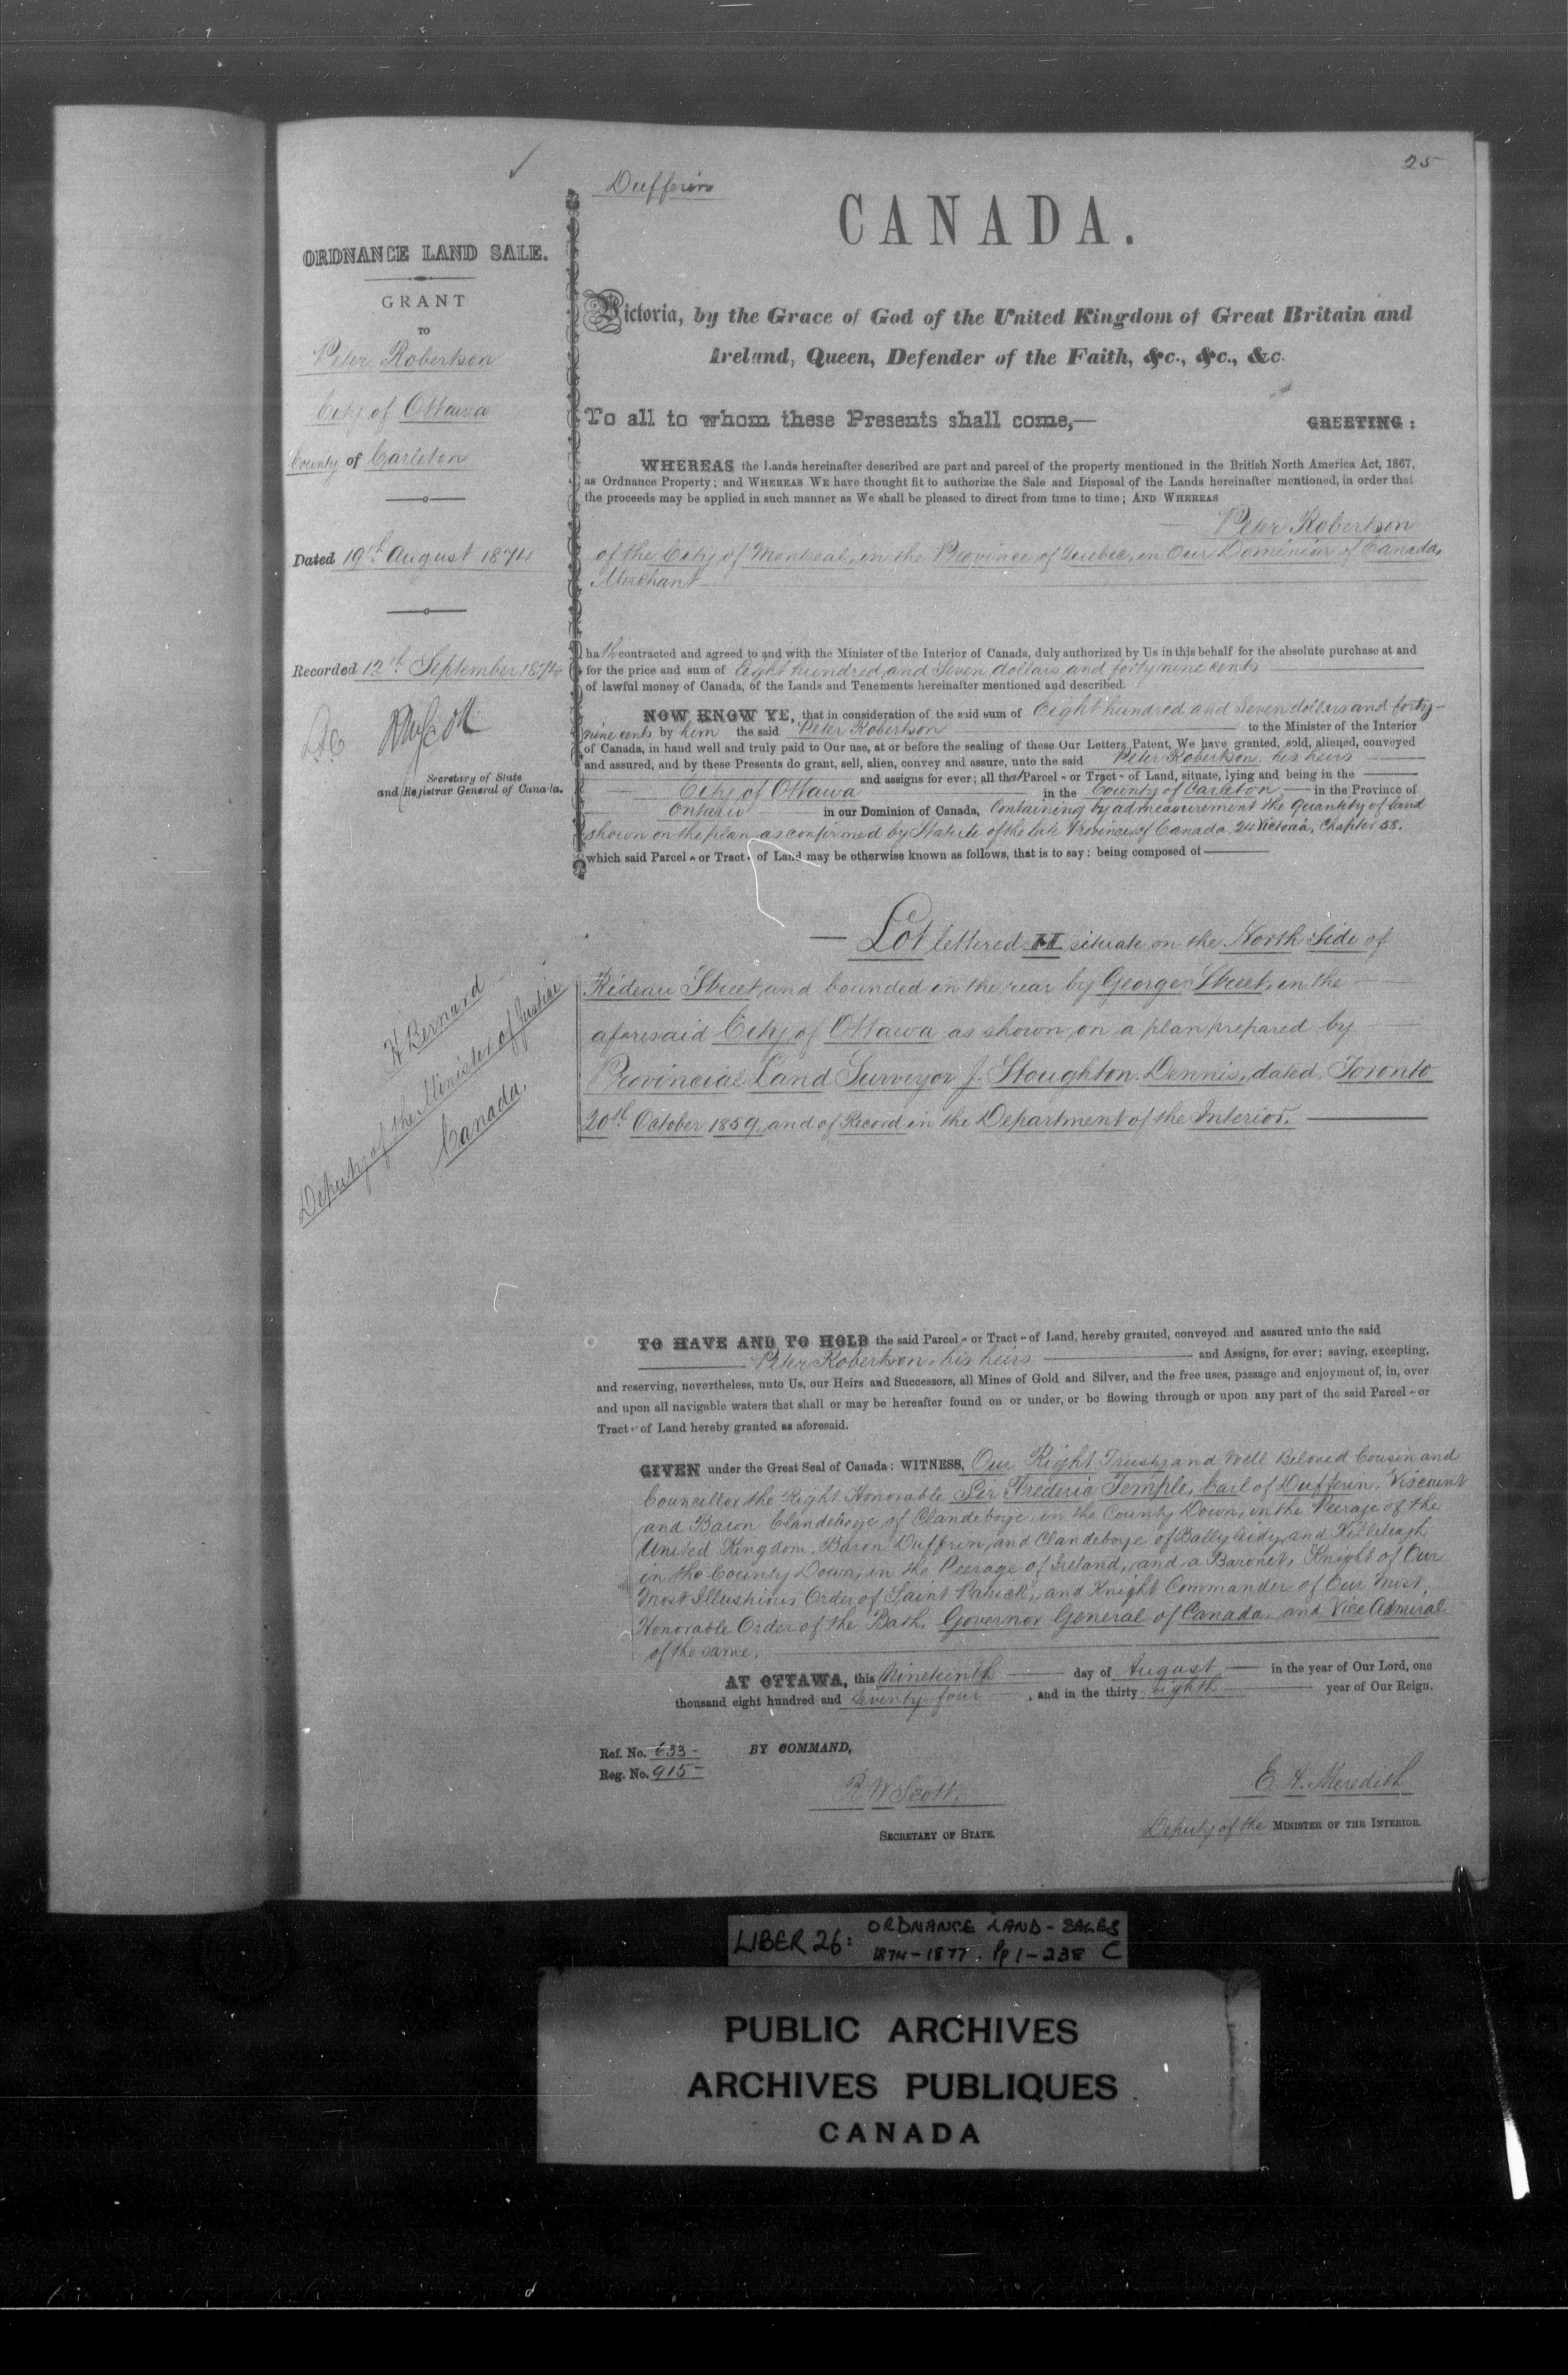 25
Dufferin
CANADA.
ORDNANCE LAND SALE.
GRANT
TO
Peter Robertson
City of Ottawa
County of Carleton
Dated 19th August 1874
Recorded 12th September 1874
Secretary of State
and Registrar General of Canada.
H Bernard
Deputy of the Minister of Justice
Canada.
Victoria, by the Grace of God of the United Kingdom of Great Britain and
Ireland, Queen, Defender of the Faith, &c., &c., &c.
To all to whom these Presents shall come,— GREETING:
WHEREAS the Lands hereinafter described are part and parcel of the property mentioned in the British North America Act, 1867,
as Ordnance Property; and WHEREAS WE have thought fit to authorize the Sale and Disposal of the Lands hereinafter mentioned, in order that
the proceeds may be applied in such manner as We shall be pleased to direct from time to time; AND WHEREAS
Peter Robertson
of the City of Montreal, in the Province of Quebec, in Our Dominion of Canada,
Merchant
hath contracted and agreed to and with the Minister of the Interior of Canada, duly authorized by Us in this behalf for the absolute purchase at and
for the price and sum of Eight hundred and Seven dollars and forty nine cents
of lawful money of Canada, of the Lands and Tenements hereinafter mentioned and described.
NOW KNOW YE, that in consideration of the said sum of Eight hundred and Seven dollars and forty-
nine cents by him the said Peter Robertson to the Minister of the Interior
of Canada, in hand well and truly paid to Our use, at or before the sealing of these Our Letters Patent, We have granted, sold, aliened, conveyed
and assured, and by these Presents do grant, sell, alien, convey and assure, unto the said Peter Robertson, his heirs
and assigns for ever; all that Parcel or Tract of Land, situate, lying and being in the
City of Ottawa in the County of Carleton, in the Province of
Ontario in our Dominion of Canada, Containing by admeasurement the quantity of land
shown on the plan as confirmed by Statute of the late Province of Canada, 24 Victoria, Chapter 58.
which said Parcel or Tract of Land may be otherwise known as follows, that is to say: being composed of
Lot lettered H situate on the North Side of
Rideau Street, and bounded in the rear by George Street, in the
aforesaid City of Ottawa as shown on a plan prepared by
Provincial Land Surveyor J. Stoughton Dennis, dated, Toronto
20th October 1859, and of Record in the Department of the Interior.
TO HAVE AND TO HOLD the said Parcel or Tract of Land, hereby granted, conveyed and assured unto the said
Peter Robertson, his heirs and Assigns, for ever; saving, excepting,
and reserving, nevertheless, unto Us, our Heirs and Successors, all Mines of Gold and Silver, and the free uses, passage and enjoyment of, in, over
and upon all navigable waters that shall or may be hereafter found on or under, or be flowing through or upon any part of the said Parcel or
Tract of Land hereby granted as aforesaid.
GIVEN under the Great Seal of Canada: WITNESS, Our Right Trusty and Well Beloved Cousin and
Councillor the Right Honorable Sir Frederic Temple, Earl of Dufferin, Viscount
and Baron Clandeboye of Clandeboye, in the County Down, in the Peerage of the
United Kingdom, Baron Dufferin and Clandeboye of Ballyleidy and Killeleagh
in the County Down, in the Peerage of Ireland, and a Baronet, Knight of Our
Most Illustrious Order of Saint Patrick, and Knight Commander of Our Most
Honorable Order of the Bath, Governor General of Canada, and Vice Admiral
of the same.
AT OTTAWA, this Nineteenth day of August in the year of Our Lord, one
thousand eight hundred and Seventy four, and in the thirty eighth year of Our Reign.
Ref. No. 633 BY COMMAND,
Reg. No. 915
R W Scott. E. A. Meredith
SECRETARY OF STATE. Deputy of the MINISTER OF THE INTERIOR.
LIBER 26: ORDNANCE LAND-SALES
1874-1877. Pp 1-238 C
PUBLIC ARCHIVES
ARCHIVES PUBLIQUES
CANADA